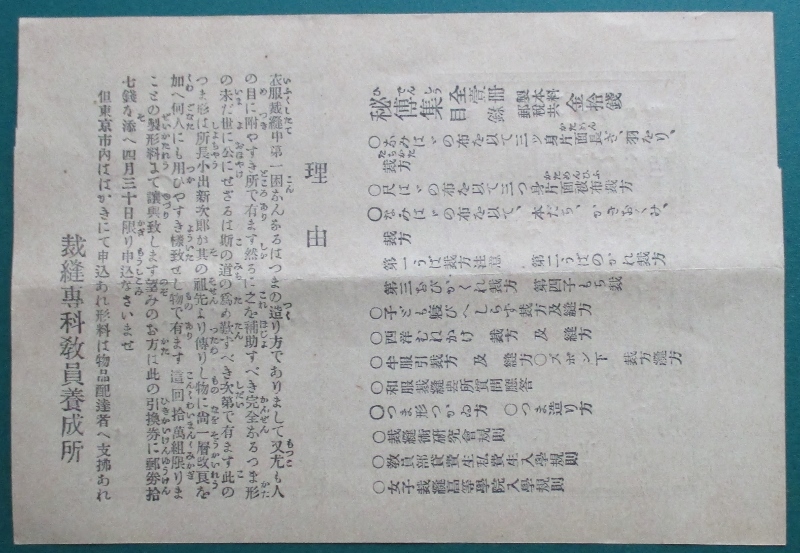 秘傳集全壹冊目錄 製本料郵税共 金拾錢
○なみはゞの布を以て三ッ身片面長ぎ、羽をり、
裁方
○尺はゞの布を以て三つ身片面被布裁方
○なみはゞの布を以て、本だち、かきおくみ、
裁方
第一うば裁方注意 第二うばのかれ裁方
第三おびかくれ裁方 第四子もち裁
○子ども腹びへしらず裁方及縫方
○西洋むねかけ 裁方 及 縫方
○牛服引裁方 及 縫方○ズボン下 裁方縫方
○和服裁縫要所質問應答
○つま形つかゐ方 ○つま造り方
○裁縫術研究會規則
○教員部貸費生私費生入學規則
○女子裁縫高等學院入學規則
理由
衣服裁縫中第一困なんなるはつまの造り方でありまして又尤も人
の目に附やすき所で有ます然るに之を補助すべき完全なるつま形
の未だ世に公にせざるは斯の道の爲め歎ずべき次第で有ます此の
つま形は所長小出新次郎が其の祖先より傳りし物に尚一層改良を
加へ何人にも用ひやすき樣致せし物で有ます這回拾萬組限りま
ことの製形料まで讓與致します望みのお方は此の引換券に郵券拾
七錢を添へ四月三十日限り申込なさいませ
但東京市内ははがきにて申込あれ形料は物品配達者へ支拂あれ
裁縫專科教員養成所